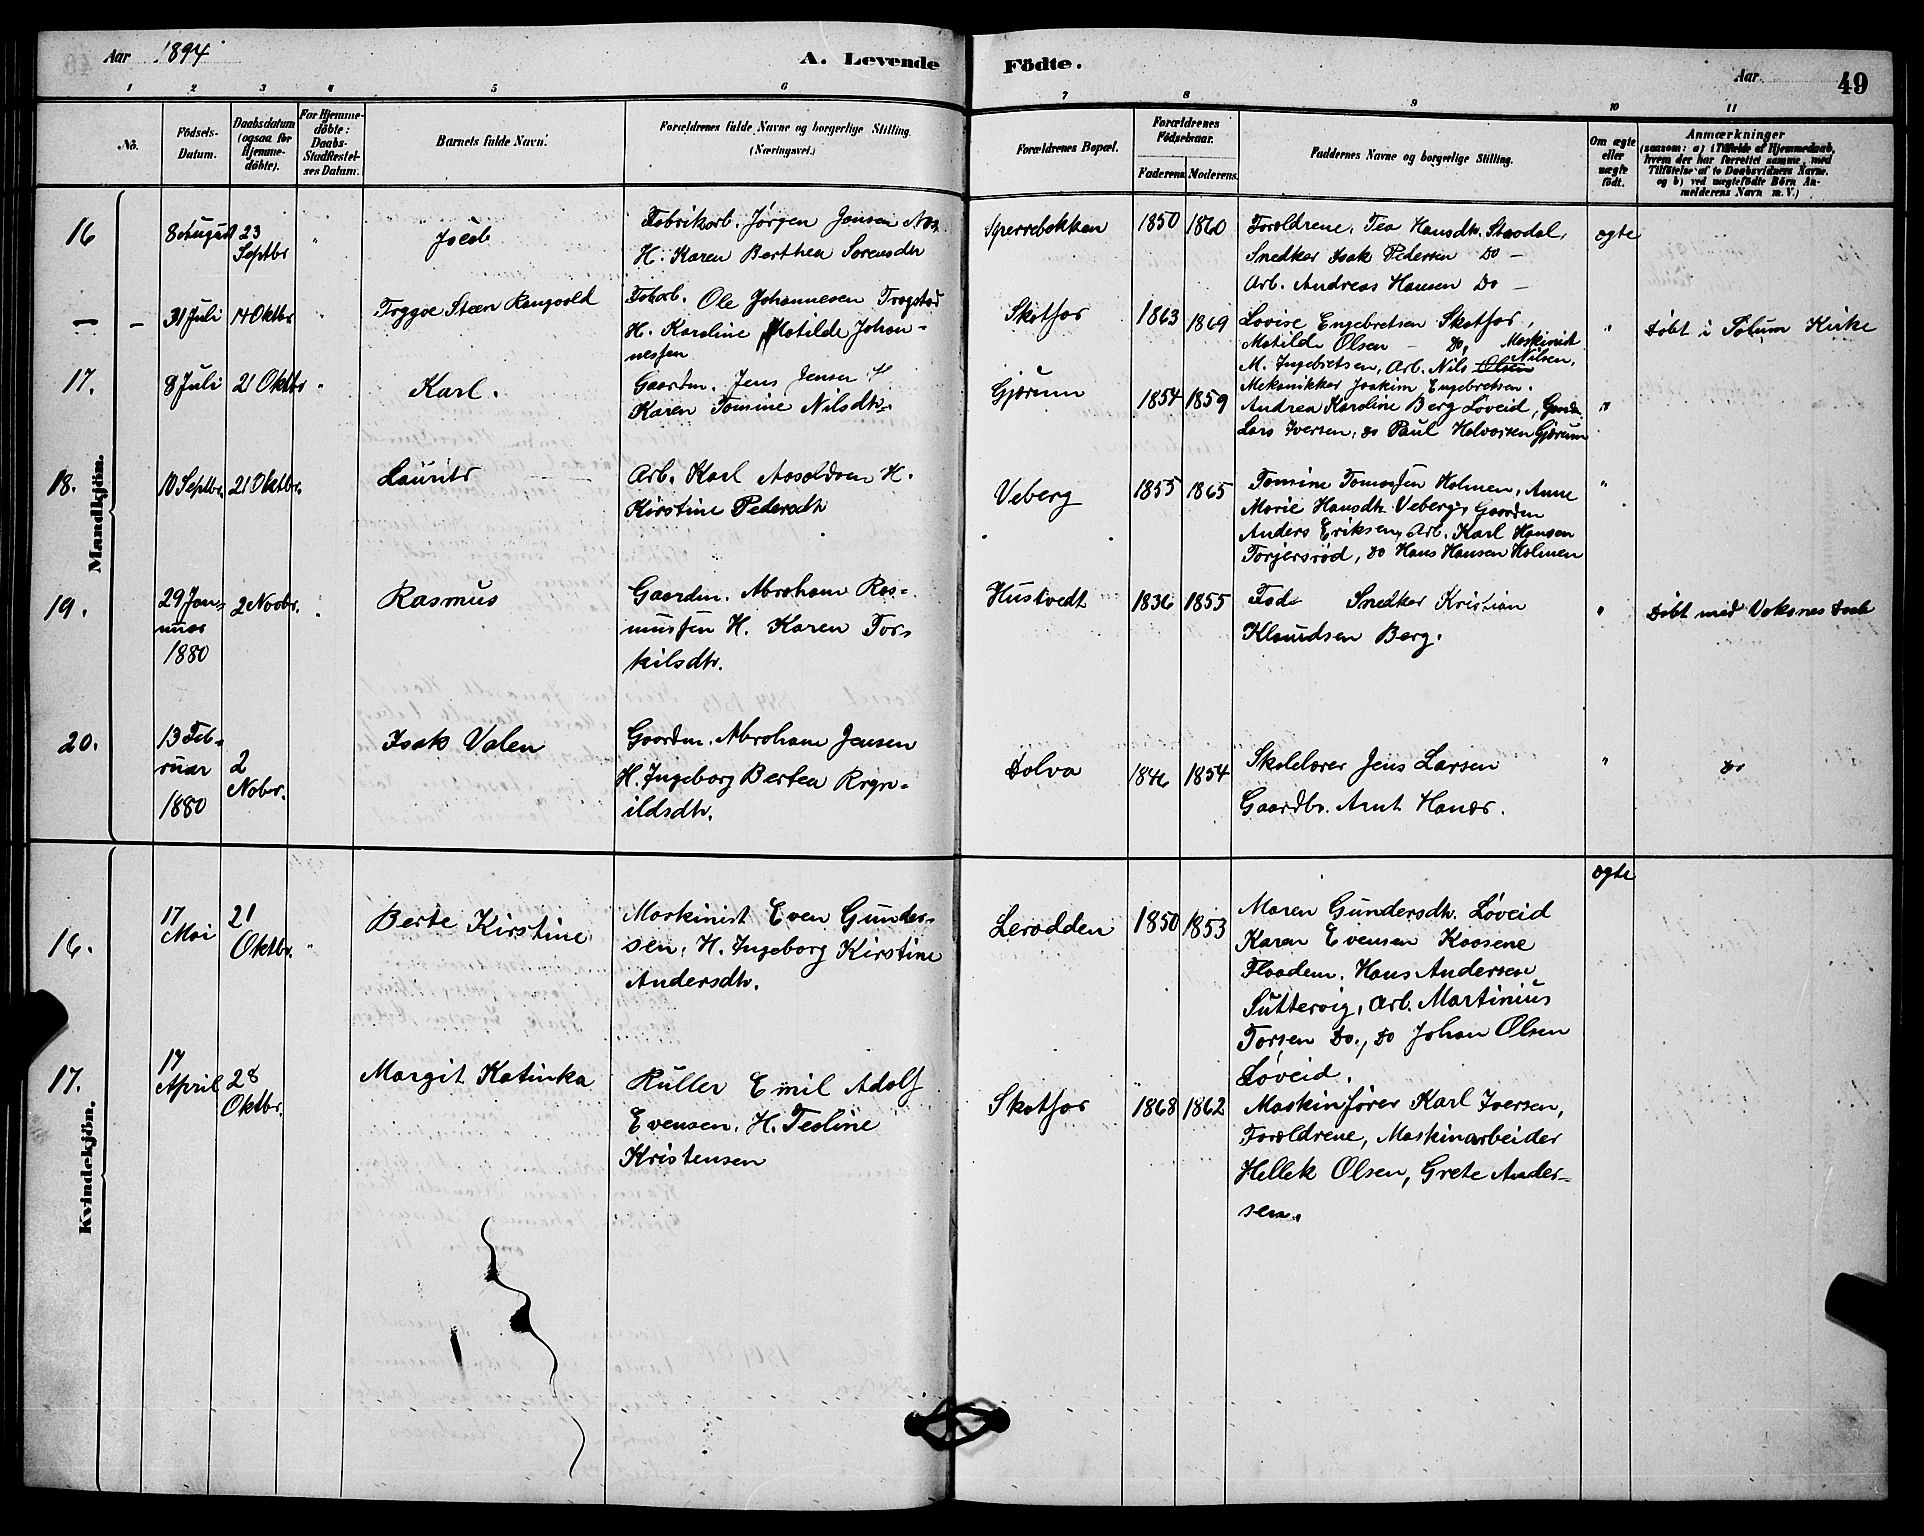 Aar 1894
A. Levende Födte.
Aar
49
1 2 3 4 5 6 7 8 9 10 11
No.
Födsels-
Datum.
Daabsdatum
(ogsaa for
Hjemme-
döbte).
For Hjemme-
döbte:
Daabs-
Stadfæstel-
ses Datum.
Barnets fulde Navn.
Forældrenes fulde Navne og borgerlige Stilling.
(Næringsvei.)
Forældrenes Bopæl.
Forældrenes
Födselsaar.
Faderens
Moderens
Faddernes Navne og borgerlige Stilling.
Om ægte
eller
uægte
født.
Anmærkninger
(saasom: a) i Tilfælde af Hjemmedaab,
hvem der har forrettet samme, med
Tilföielse af to Daabsvidners Navne.
og b) ved uægtefödte Börn An-
melderens Navn m. V.)
Mandkjön.
16
8 August
23
Septbr
"
Jacob
Fabrikarb. Jørgen Jensen Næs
H. Karen Berthea Sørensdtr
Sperrebakken
1850
1860
Forældrene, Tea Hansdtr. Stavdal,
Snedker Isak Pedersen Do -
Arb. Andreas Hansen Do -
ægte
—
-
31 Juli
14 Oktbr
"
Tryggve Steen Rangvald
Fabarb. Ole Johannesen Trogstad
H. Karoline Matilde Johan-
nessen
Skotfos
1863
1869
Lovise Engebretsen Skotfos,
Matilde Olsen - Do, Maskinist
M. Ingebretsen, Arb. Nils Olsen Nilsen,
Mekanikker Joakim Engebretsen.
"
Døbt i Solum Kirke
17.
8 Juli
21 Oktbr
"
Karl.
Gaardm. Jens Jensen H
Karen Tomine Nilsdtr
Gjærum
1854
1859
Andrea Karoline Berg Løveid, Gaardm.
Lars Iversen, do Paul Halvorsen Gjærum
"
18.
10 Septbr.
21 Oktbr.
Laurits
Arb. Karl Aasoldsen H.
Kirstine Pedersdtr
Veberg
1855
1865
Tomine Tomassen Holmen, Anne
Marie Hansdtr. Veberg, Gaardm
Anders Eriksen, Arb. Karl Hansen
Torjersrød, do Hans Hansen Holmen
"
19.
29 Jan-
nuar
1880
2 Novbr.
"
Rasmus
Gaardm. Abraham Ras-
mussen H. Karen Tor-
kilsdtr.
Hustvedt
1836
1855
Fad. Snedker Kristian
Klaudsen Berg.
"
Døbt med Voksnes Daab
20.
13 Feb-
ruar
1880
2
Nobr.
Isak Valen
Gaardm. Abraham Jensen
H. Ingeborg Bertea Regn-
ildsdtr.
Dolva
1846
1854
Skolelærer Jens Larsen
Gaardbr. Arnt Hanss.
"
Do
Kvindekjön.
16.
17
Mai
21
Oktbr.
"
Berte Kirstine
Maskinist Even Gunder-
sen, H. Ingeborg Kirstine
Andersdtr.
Lerodden
1850
1853
Maren Gundersdtr. Løveid
Karen Evensen Kaasene
Flaadem. Hans Andersen
Suttervig, Arb. Martinius
Torsen Do., Do Johan Olsen
Løveid.
ægte
17.
17
April
28
Oktbr.
Margit Katinka
Ruller Emil Adolf
Evensen, H. Teoline
Kristensen
Skotfos
1868
1862
Maskinfører Karl Iversen,
Forældrene, Maskinarbeider
Hellek Olsen, Grete Ander-
sen.